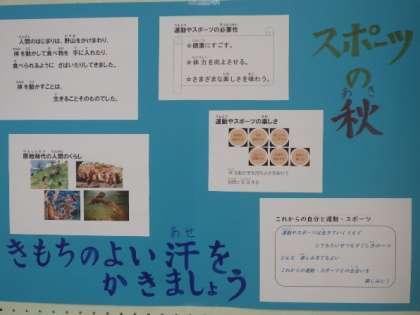 人間のはじまりは、野山をかけまわり、
体を動かして食べ物を 手に入れたり、
食べられるように さばいたりしてきました。
体を動かすことは、
生きることそのものでした。
運動やスポーツの必要性
健康にすごす。
体力を向上させる。
さまざまな楽しさを味わう。
スポーツ
の
あき
秋
原始時代の人間のくらし
運動やスポーツの楽しさ
これからの自分と運動・スポーツ
運動やスポーツは生きていくうえで
これからの運動・スポーツとの出会いを
楽しみに!
あせ
きもちのよい汗を
かきましょう